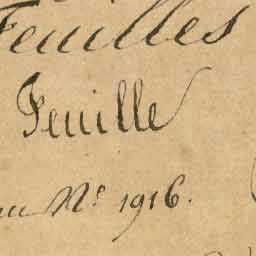 Feuilles
Feuille
au Nº 1916.